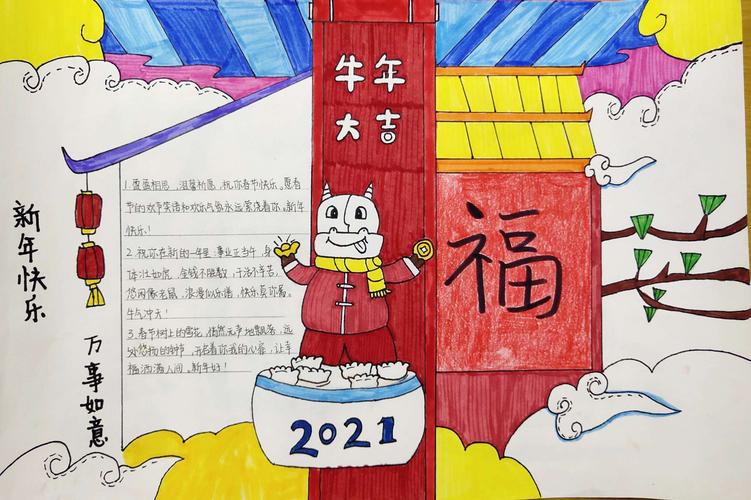 牛年
大吉
新年快乐
万事如意
1.重重相思,温馨祈愿,祝你春节快乐。愿春
节的欢声笑语和欢乐气氛永远萦绕着你。新年
快乐!
2.祝你在新的一年里:事业正当午,身
体壮如虎,金钱不胜数,干活不辛苦,
悠闲像老鼠,浪漫似乐谱,快乐莫你属。
牛气冲天!
3.春节树上的雪花,悄然无声地飘落,远
处悠扬的钟声,开启着你我的心窗,让幸
福洒满人间。新年好!
福
2021